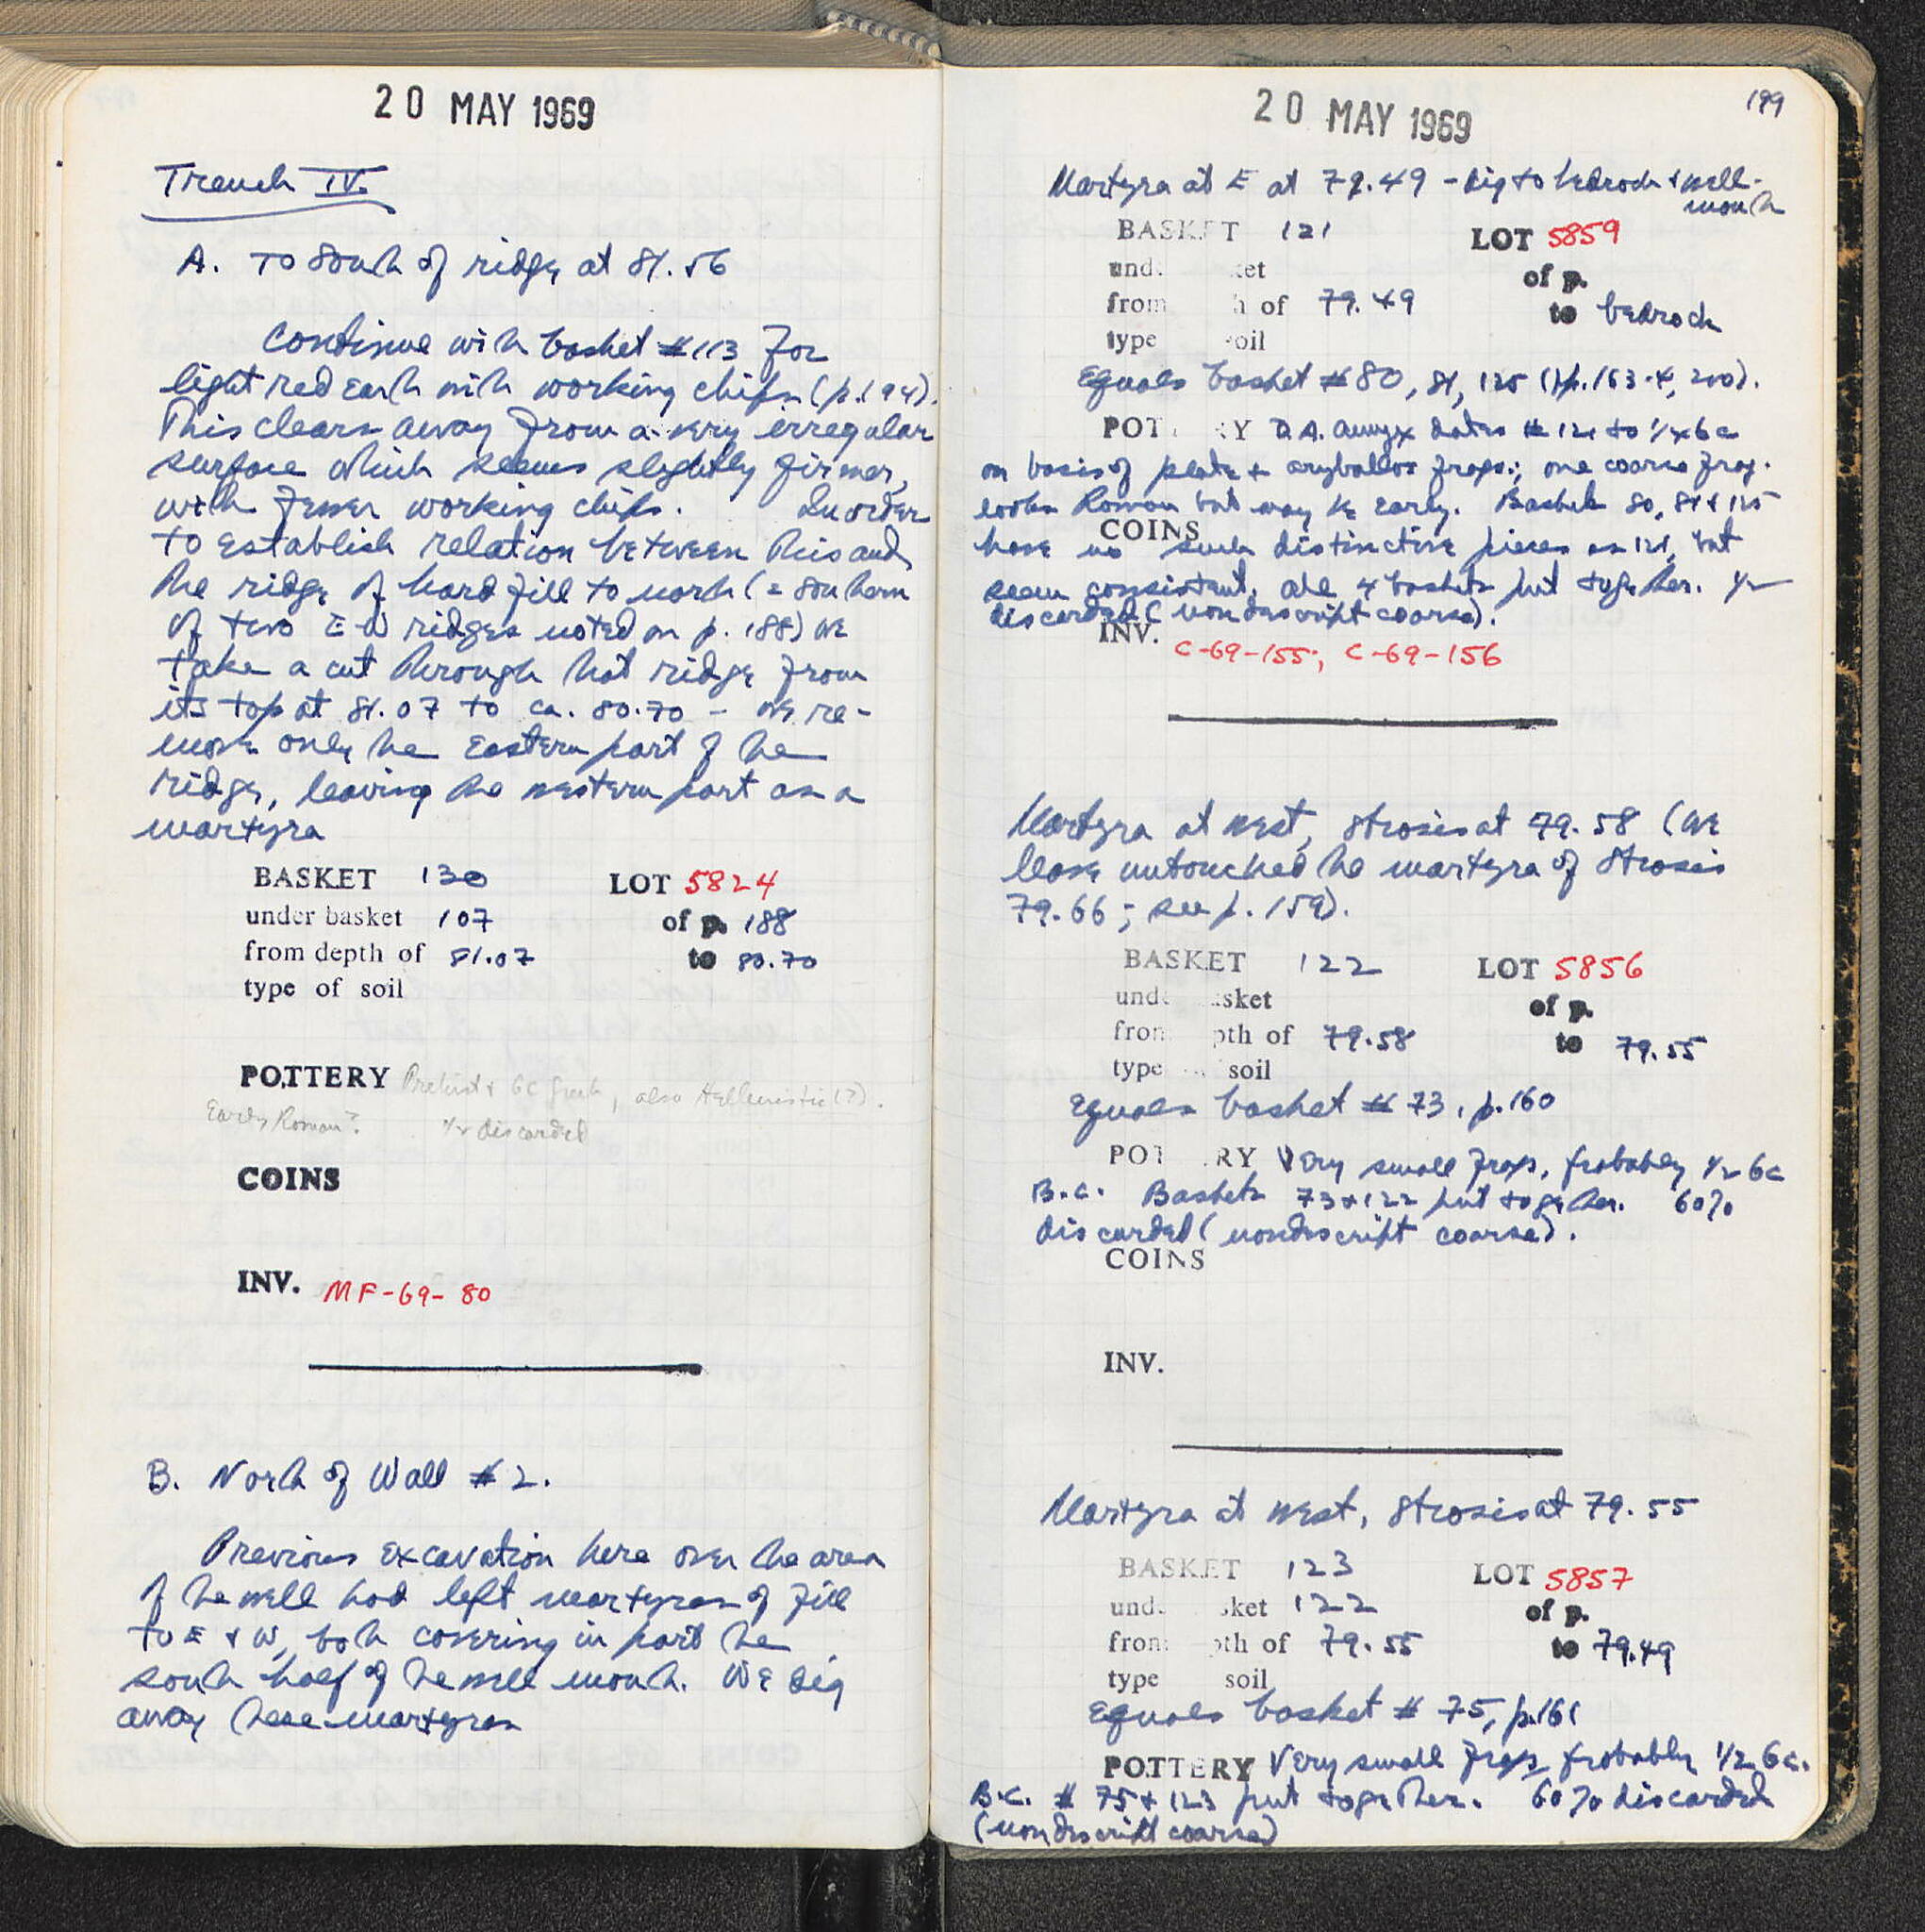 20 MAY 1969
Trench IV.
A. To south of ridge at 81.56
Continue with basket #113 for
light red earth with working chips (p. 194).
This clears away from a very irregular
surface which seems slightly firmer,
with fewer working chips. In order
to establish relation between this and
the ridge of hard fill to north (= southern
of two E-W ridges noted on p. 188) we
take a cut through that ridge from
its top at 81.07 to ca. 80.70 - we re-
move only the Eastern part of the
ridge, leaving the western part as a
martyra
BASKET 130 LOT 5824
under basket 107 of p. 188
from depth of 81.07 to 80.70
type of soil
POTTERY Prehist + 6C Greek, also Hellenistic(?).
Early Roman? ½ discarded
COINS
INV. MF-69-80
B. North of Wall #2.
Previous excavation here over the area
of the well had left martyras of fill
to E + W, both covering in part the
south half of the well mouth. We dig
away these martyras
20 MAY 1969
199
Martyra at E at 79.49 - dig to bedrock + well-
mouth
BASKET 121 LOT 5859
und ket of p.
from h of 79.49 to bedrock
type oil
Equals basket #80, 81, 125 (pp. 163-4, 200).
POT RY D.A. Amyx dates #121 to ¼ 6c
on basis of plate + aryballos frags.; one coarse frag.
looks Roman but may be early. Baskets 80, 81 + 125
have no such distinctive pieces as 121, but
COINS
seem consistent. All 4 baskets put together. ½
discarded (nondescript coarse).
INV. C-69-155; C-69-156
Martyra at west, strosis at 79.58 (we
leave untouched the martyra of strosis
79.66; see p. 159).
BASKET 122 LOT 5856
unde sket of p.
fron pth of 79.58 to 79.55
type soil
Equals basket #73, p. 160
POT RY Very small frags, probably ½ 6c
B.C. Baskets 73 + 122 put together. 60%
discarded (nondescript coarse).
COINS
INV.
Martyra at west, strosis at 79.55
BASKET 123 LOT 5857
und sket 122 of p.
from pth of 79.55 to 79.49
type soil
Equals basket # 75, p. 161
POTTERY Very small frags, probably 1/2 6c.
B.C. # 75 + 123 put together. 60% discarded
(nondescript coarse)